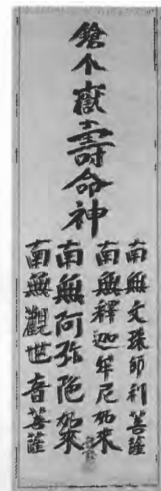 鎗个嶽壽命神
南無文珠師利菩薩
南無釋迦牟尼如来
南無阿弥陀如来
南無觀世音菩薩